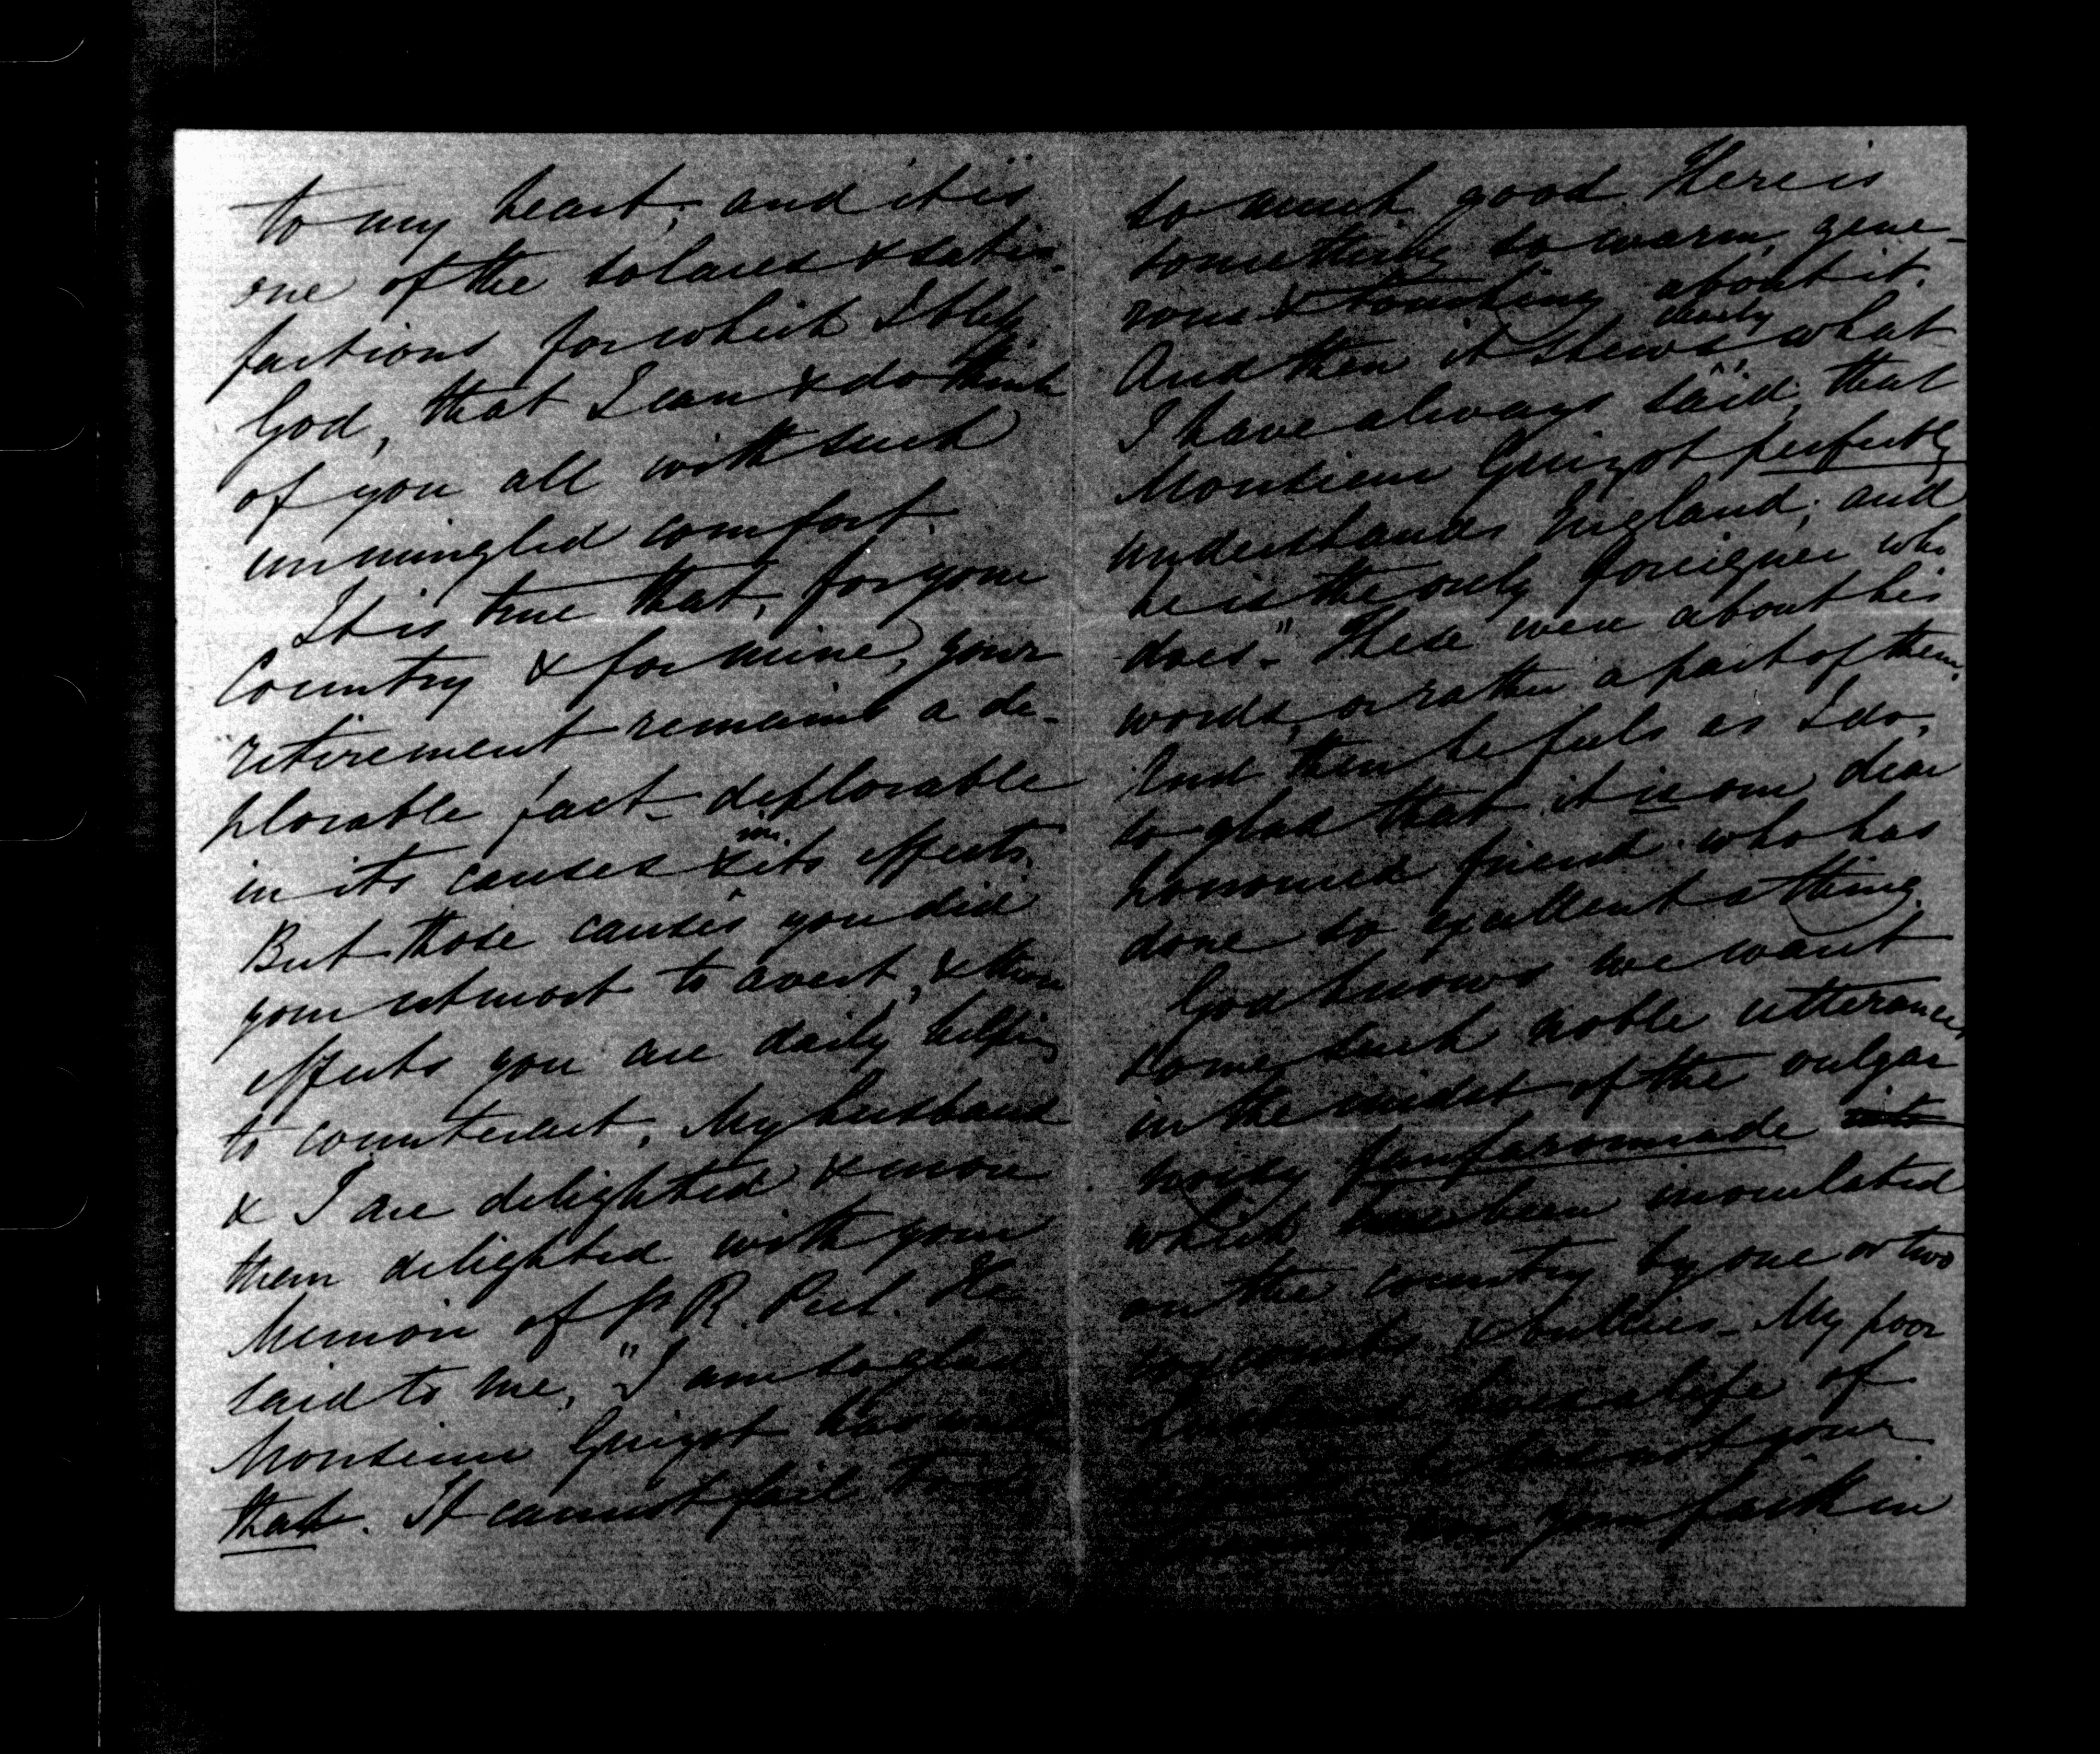 to my heart; and it is
one of the solaces & satis-
factions for which I bless
God, that I can & do think
of you all with such
unmingled comfort.
It is true that, for your
Country & for mine, your
retirement remains a de-
plorable fact - deplorable
in its causes & in its effects.
But those causes you did
your utmost to avert, & those
effects you are daily helping
to counteract. My husband
& I are delighted & more
then delighted with your
Memoir of Sr R. Peel. He
said to me, "I am so glad
Monsieur Guizot has
that. It cannot fail to do
so much good. There is
something so warm, gene-
rous & touching about it.
And then it shews clearly what
I have always said, that
Monsieur Guizot perfectly
understands England; and
he is the only foreigner who
does." These were about his
words, or rather a part of them.
And then he feels as I do,
so glad that it is our dear
honoured friend who has
done so excellent a thing.
God knows we want
some such noble utterances,
in the midst of the vulgar
wordy fanfaronnade
which has been inoculated
on the country by one or two
coxcombs & bullies - My poor
husband has a life of
he has not your
nor your faith in